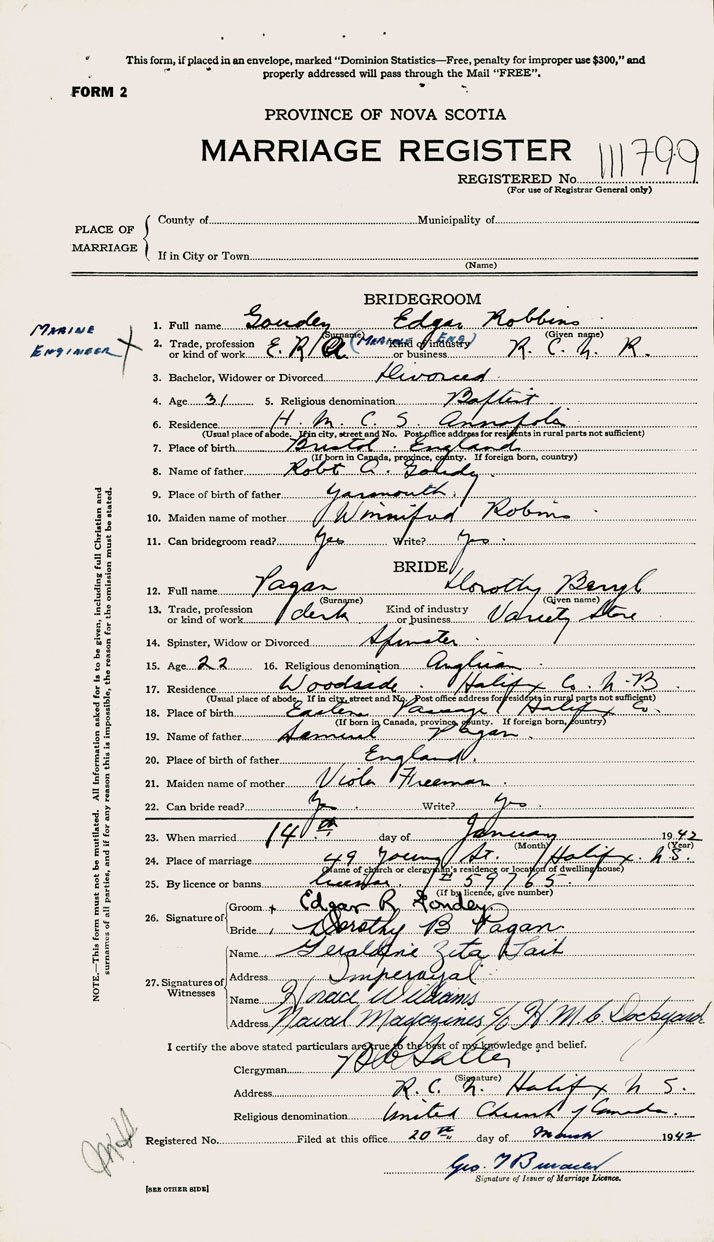 This form, if placed in an envelope, marked "Dominion Statistics—Free, penalty for improper use $300," and
properly addressed will pass through the Mail "FREE".
FORM 2
PROVINCE OF NOVA SCOTIA
MARRIAGE REGISTER
REGISTERED No. 111799
(For use of Registrar General only)
PLACE OF MARRIAGE
County of Municipality of
If in City or Town
(Name)
BRIDEGROOM
1. Full name Goudey Edgar Robbins
(Surname) (Given name)
MARINE ENGINEER
2. Trade, profession or kind of work E.R.A. (MARINE ENG) Kind of industry or business R. C. N. R.
3. Bachelor, Widower or Divorced Divorced
4. Age 31 5. Religious denomination Baptist
6. Residence H. M. C. S. Annapolis
(Usual place of abode. If in city, street and No. Post office address for residents in rural parts not sufficient)
7. Place of birth Bristol. England
(If born in Canada, province, county. If foreign born, country)
8. Name of father Robt A. Goudy.
9. Place of birth of father Yarmouth.
10. Maiden name of mother Winnifred Robins
11. Can bridegroom read? Yes Write? Yes.
BRIDE
12. Full name Pagan Dorothy Beryl
(Surname) (Given name)
13. Trade, profession or kind of work Clerk Kind of industry or business Variety Store
14. Spinster, Widow or Divorced Spinster.
15. Age 22 16. Religious denomination Anglican
17. Residence Woodside. Halifax Co. N.B
(Usual place of abode. If in city, street and No. Post office address for residents in rural parts not sufficient)
18. Place of birth Eastern Passage Halifax Co.
(If born in Canada, province, county. If foreign born, country)
19. Name of father Samuel Pagan.
20. Place of birth of father England.
21. Maiden name of mother Viola Freeman.
22. Can bride read? Yes Write? Yes.
23. When married 14th day of January 1942
(Month) (Year)
24. Place of marriage 49 Young St. Halifax. N.S.
(Name of church or clergyman's residence or location of dwelling house)
25. By licence or banns license. # 59765.
(If by licence, give number)
26. Signature of
Groom Edgar R Goudey
Bride Dorothy B Pagan
27. Signatures of Witnesses
Name Geraldine Zita
Address Imperoyal
Name Horace Williams
Address Naval Magazines c/o H M C Dockyard
I certify the above stated particulars are true to the best of my knowledge and belief.
Clergyman
(Signature)
Address R. C. N. Halifax N. S.
Religious denomination United Church of Canada.
Registered No. Filed at this office 20th day of March 1942
Geo. T
Signature of Issuer of Marriage Licence.
[SEE OTHER SIDE]
NOTE.—This form must not be mutilated. All information asked for is to be given, including full Christian and
surnames of all parties, and if for any reason this is impossible, the reason for the omission must be stated.